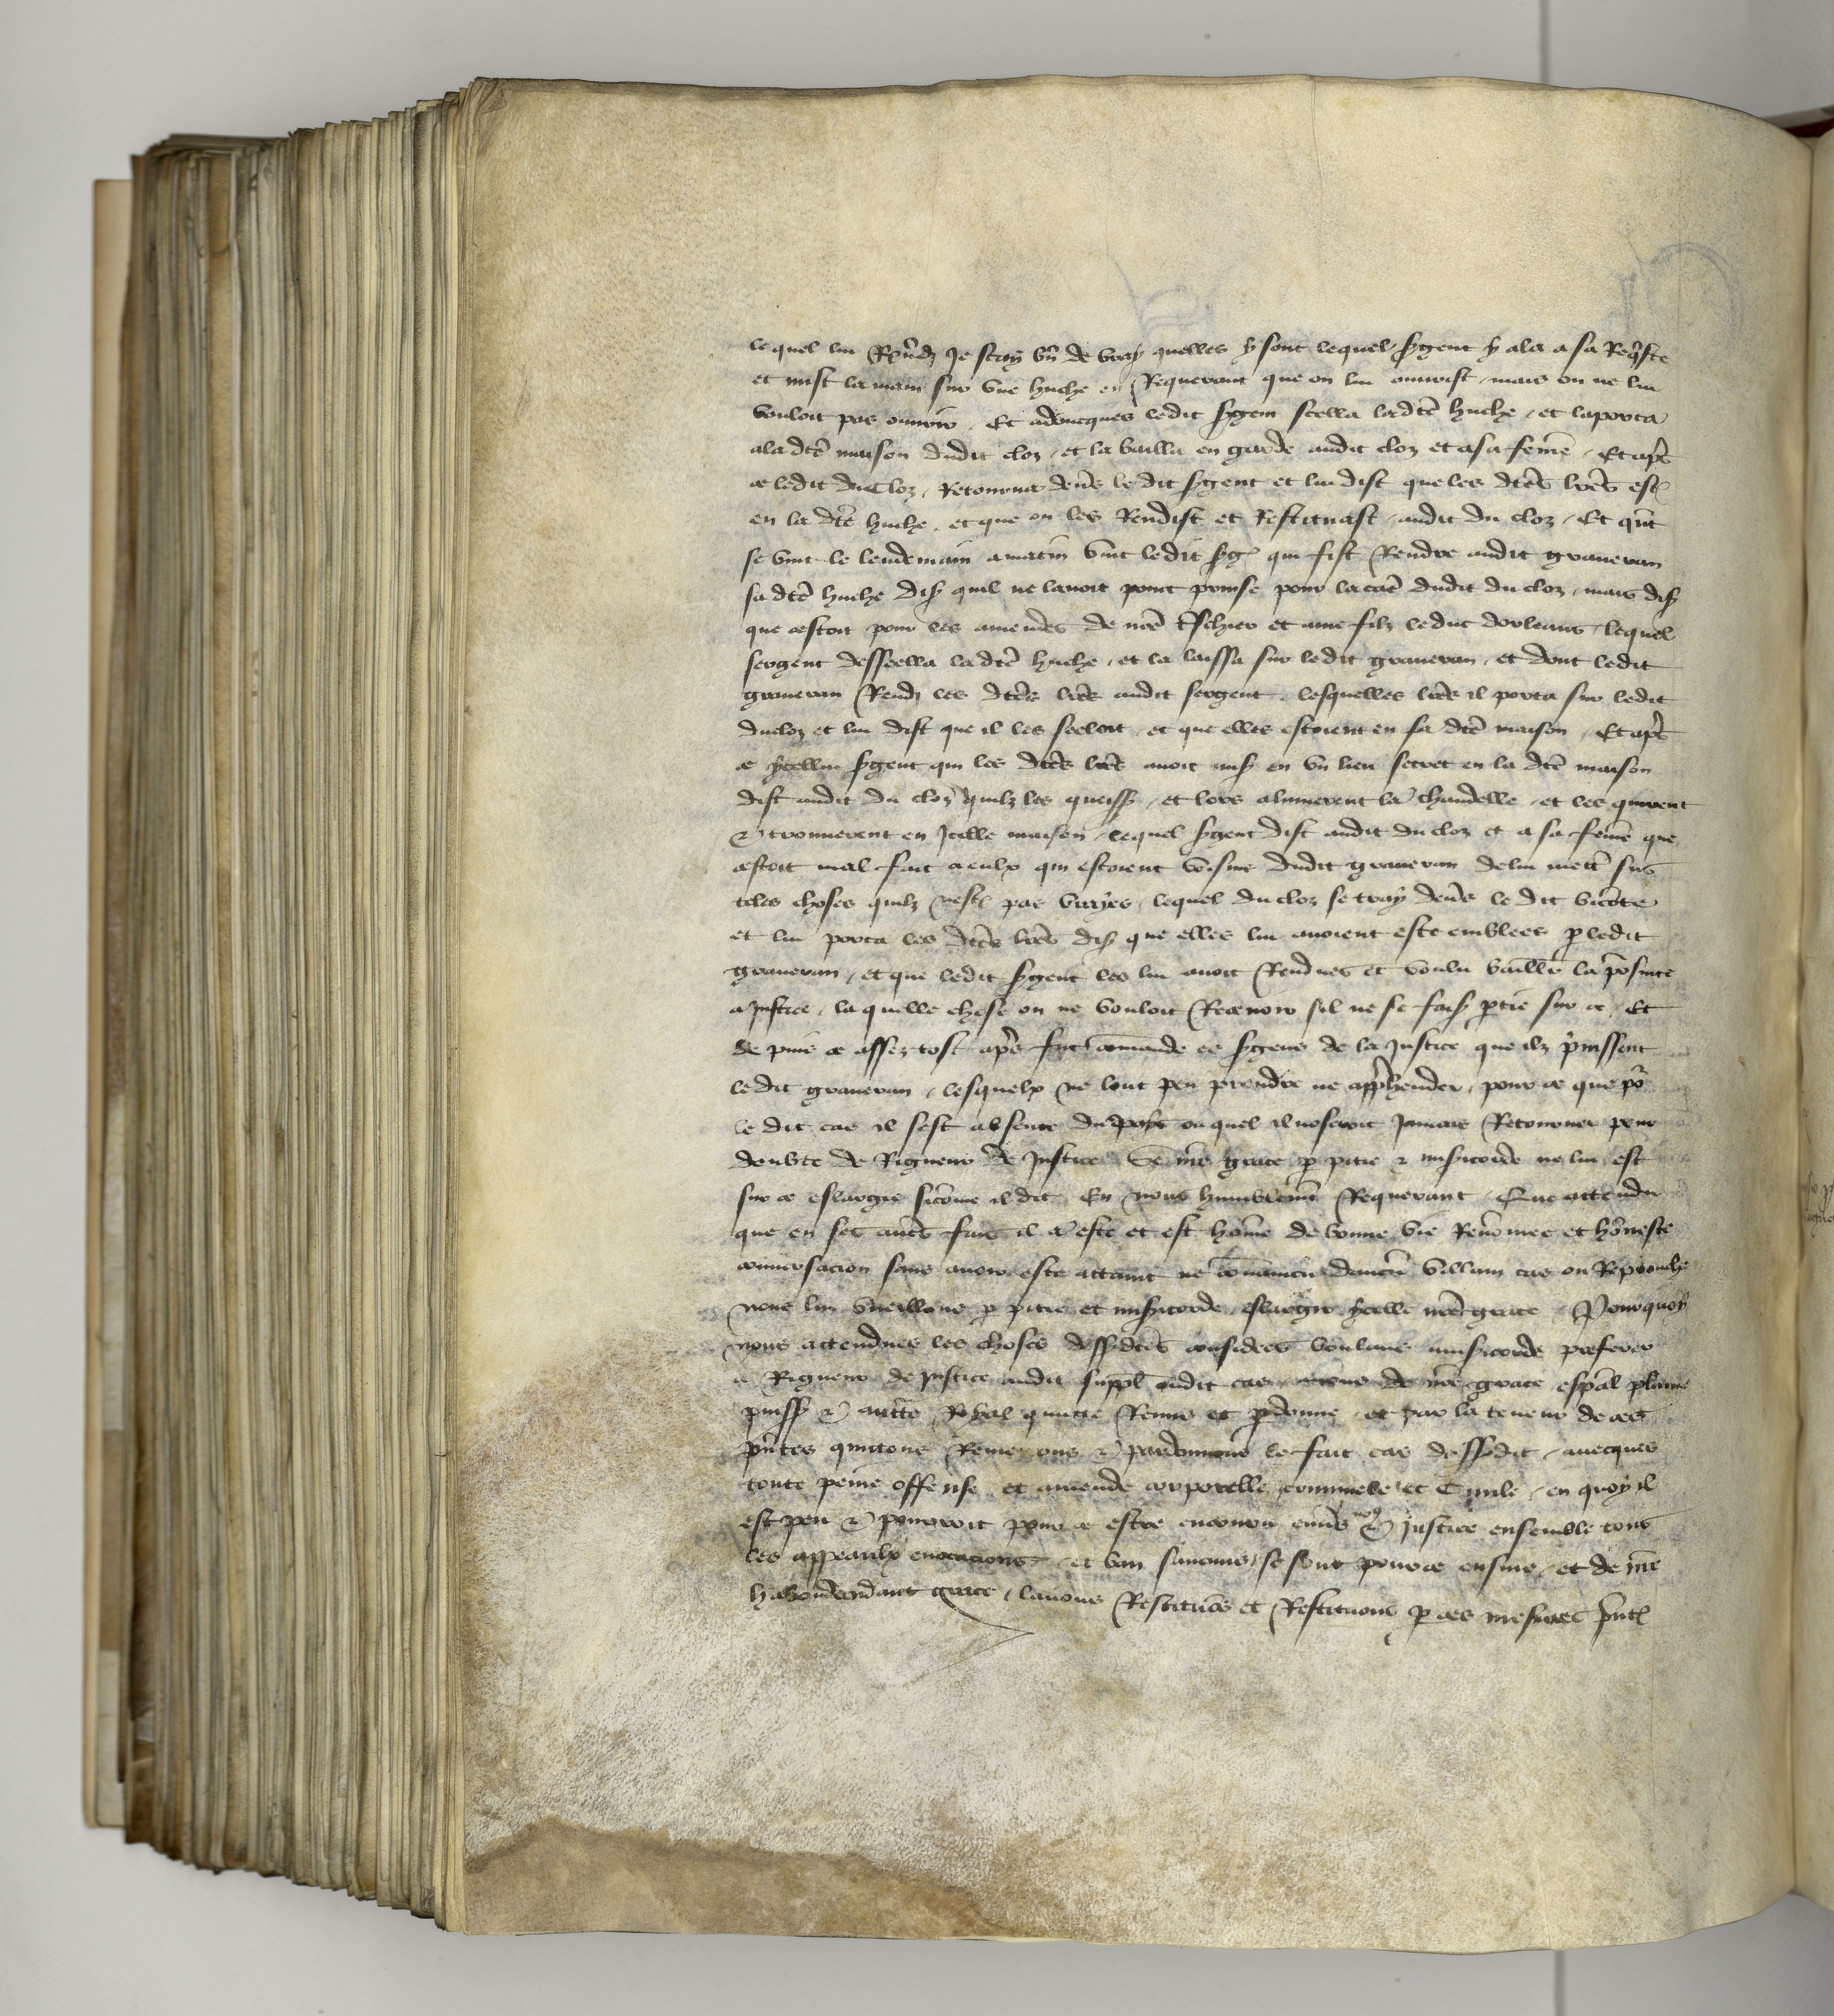 lequel lui Rñdj Je scay bñ de vray quelles y sont lequel sgent y ala a sa Reqste
et mist la main sur une huche en Requerant que on lui ouvrist mais on ne lui
vouloit pas ouvrir . Et adoncques ledit sgent scella lad̃te huche / et laporta
a la dt̃e maison dudit cloz / et la bailla en garde audit cloz et a sa fem̃e / Et apr̃s
ce ledit du Cloz / Retourna deṽs le dit sgent et lui dist que les dt̃es lr̃es est
en la dt̃e huche / et que on les Rendist et Restituast audit du cloz / Et qñt
se vint le lendemain a matin vint le dit sg qui fist Rendre audit graveran
sa dt̃e huche dis quil ne lavoit point prinse pour la cãe dudit du cloz / mais dis
que cestoit pour les amendes de nr̃e tschier et ame filz le duc dorleans / lequel
sergent desseella la dt̃e huche / et la laissa sur ledit graveran / et dont ledit
graveran Rendj les dt̃es lr̃es audit sergent . lesquelles lr̃es il porta sur ledit
ducloz et lui dist que il les seeloit / et que elles estoient en sa dt̃e maison / Et apr̃s
ce ycellui sgent qui les dt̃es lr̃es avoit mis en vñ lieu secret en la dt̃e maison
dist audit du cloz quilz les queiss / et lors alumerent la chandelle / et les quirent
⁊ trouverent en Icelle maison / lequel sgent dist audit du cloz et a sa fem̃e que
cestoit mal fait a eulx qui estoient voisins dudit graveran de lui mettr̃ sus
teles choses quilz nest pas vrayes / lequel du cloz se tray deṽs le dit vicõte
et lui porta les dt̃es lr̃es dis que elles lui avoient este emblees p ledit
graveran / et que ledit sgent les lui avoit Rendues et voulu baill̃r la psinte
a justice / la quelle chose on ne vouloit Recevoir sil ne se fais ptie sur ce / Et
de puis ce assez tost apr̃s fut cõmande es sgens de la justice que ilz prinssent
ledit graveran / lesquelx ne lont peu prendre ne apprhender / pour ce que po
le dit cas il sest absente du pays ou quel il noseroit jamais Retourner pour
doubte de Rigueur de Justice Se nr̃e grace p pitie ⁊ misicorde ne lui est
sur ce eslargie sicõme il dit En nous humblemt̃ Requerant / Que attendu
que en ses autr̃s fais il a este et est hom̃e de bonne vie Renõmee et hõneste
conversacion sans avoir este attaint ne convaincu dauctũ villain cas ou Reprouche
nous lui vueillons p pitie et misicorde eslargir ycelle nr̃e grace / Pourquoy
nous attendues les choses dessudt̃es considees voulans misicorde preferer
a Rigueur de justice audit suppl oudit cas avons de nr̃e grace espal plaine
puiss ⁊ auct̃te Royal quictie Remis et pdonne / et par la teneur de ces
pñtes quictons Remetons ⁊ pardonnons le fait cas dessudit / avecques
toute peine offense et amende corporelle criminele et Civile / en quoy il
est peu ⁊ pourroit pour ce estre encouru env̾s noꝰ ⁊ justice ensemble tous
les appeaulx evocacions / et ban saucuns se sont pource ensuis / et de nr̃e
habondant grace / lavons Restitués et Restituons p ces mesmes pñt